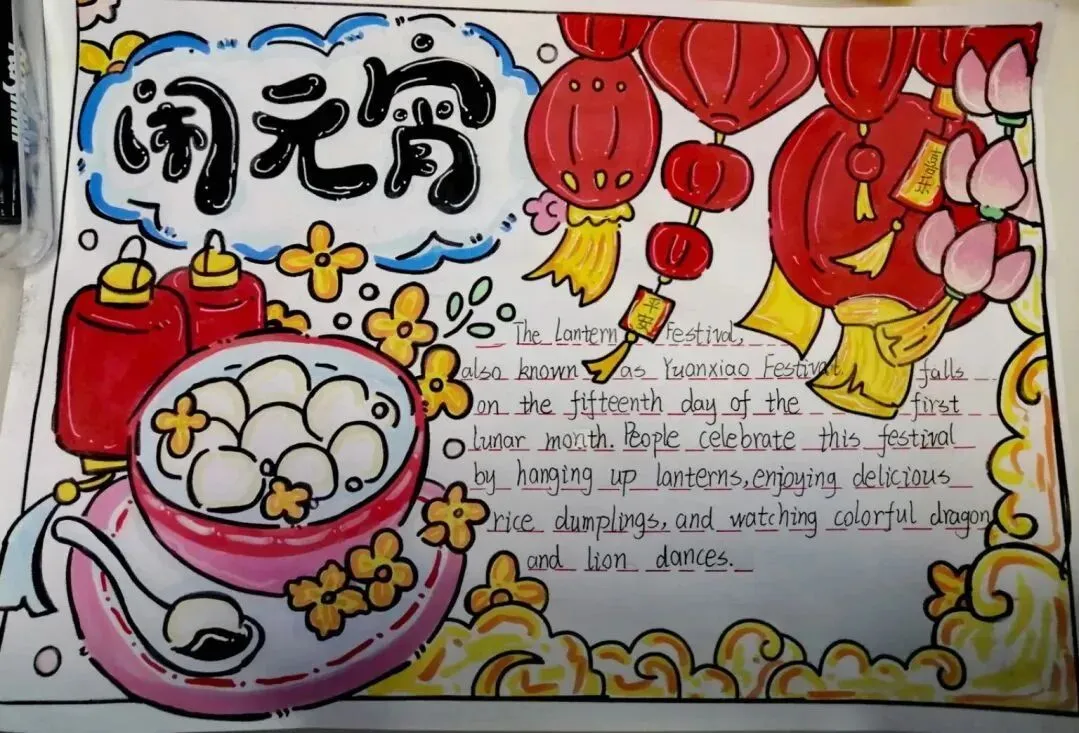 闹元宵
The Lantern Festival,
also known as Yuanxiao Festival falls
on the fifteenth day of the first
lunar month. People celebrate this festival
by hanging up lanterns, enjoying delicious
rice dumplings, and watching colorful dragon
and lion dances.